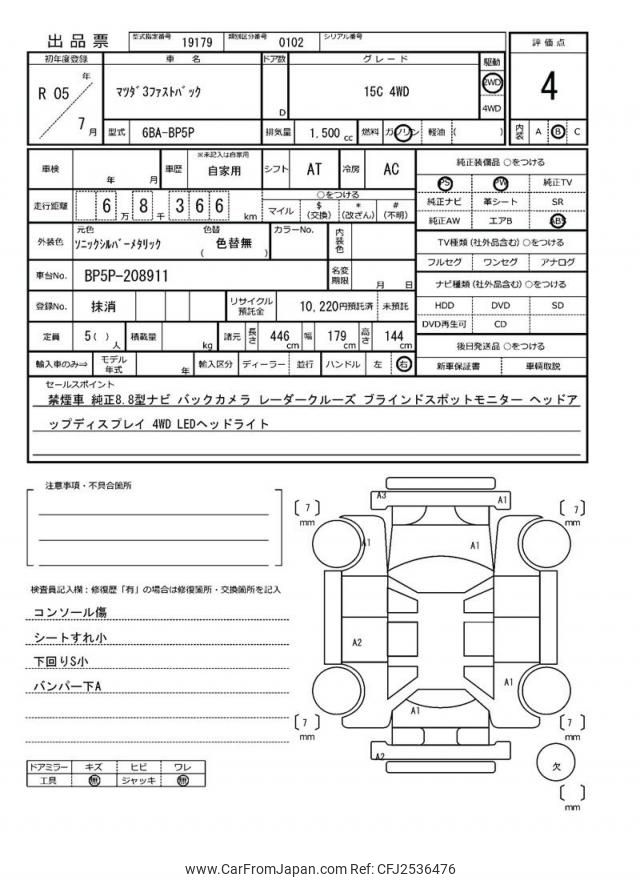 出品票
型式指定番号 19179 類別区分番号 0102 シリアル番号
初年度登録 車 名 ドア数 グレード 駆動 評価点
R 05 年 7 月
マツダ3ファストバック D 15C 4WD 2WD 4WD 4
型式 6BA-BP5P 排気量 1.500 cc 燃料 ガソリン 軽油 ( ) 内装 A B C
車検 年 月 車歴 ※未記入は自家用 自家用 シフト AT 冷房 AC
走行距離 6 万 8 千 3 6 6 km ○をつける マイル $ (交換) * (改ざん) # (不明)
外装色 元色 ソニックシルバーメタリック 色替 ( 色替無 ) カラーNo. 内装色
車台No. BP5P-208911 名変期限 月 日
登録No. 抹消 リサイクル預託金 10,220円預託済 未預託
定員 5( ) 人 積載量 kg 諸元 長さ 446 cm 幅 179 cm 高さ 144 cm
輸入車のみ⇒ モデル年式 年 輸入区分 ディーラー 並行 ハンドル 左 右
純正装備品 ○をつける
PS PW 純正TV
純正ナビ 革シート SR
純正AW エアB ABS
TV種類 (社外品含む) ○をつける
フルセグ ワンセグ アナログ
ナビ種類 (社外品含む) ○をつける
HDD DVD SD
DVD再生可 CD
後日発送品 ○をつける
新車保証書 車輌取説
セールスポイント
禁煙車 純正8.8型ナビ バックカメラ レーダークルーズ ブラインドスポットモニター ヘッドア
ップディスプレイ 4WD LEDヘッドライト
注意事項・不具合箇所
検査員記入欄：修復歴「有」の場合は修復箇所・交換箇所を記入
コンソール傷
シートすれ小
下回りS小
バンパー下A
ドアミラー キズ ヒビ ワレ
工具 無 ジャッキ 無
A3 A1
7 mm
7 mm
A1 A1
A2
A1
A1
7 mm
7 mm
A2
欠
mm
www.CarFromJapan.com Ref: CFJ2536476